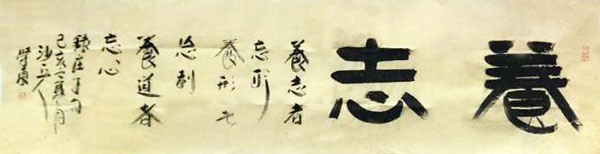 養志
養志者
忘形
養形者
忘利
養道者
忘心
錄莊子句
己亥